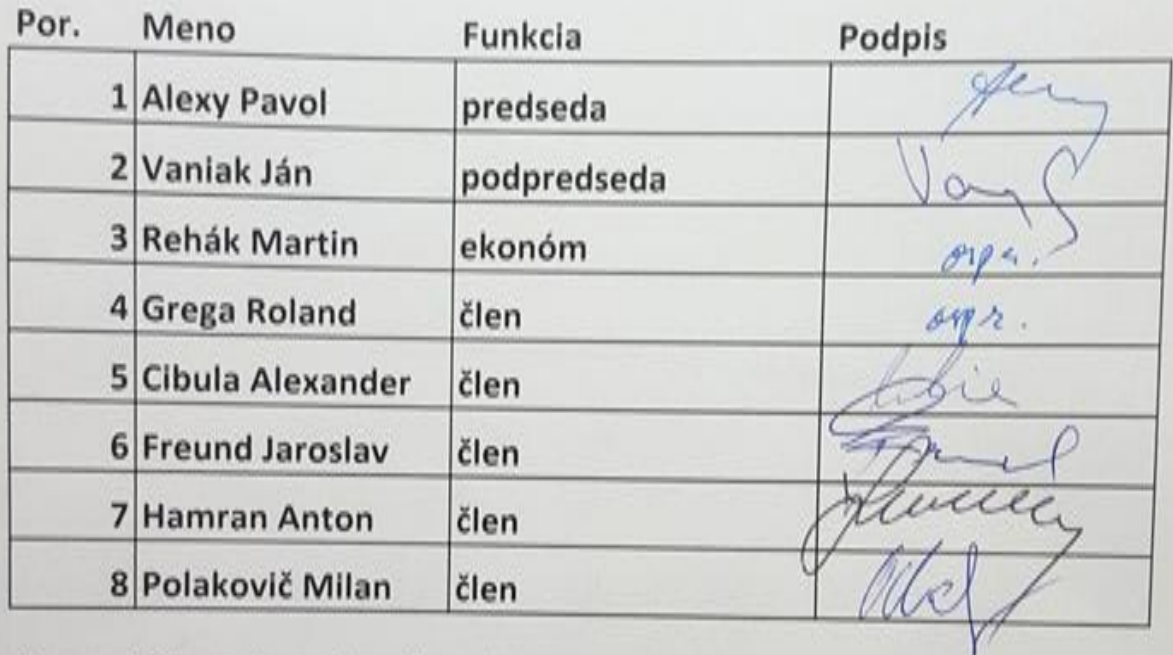 Por. Meno Funkcia Podpis
1 Alexy Pavol predseda
2 Vaniak Ján podpredseda
3 Rehák Martin ekonóm
4 Grega Roland člen ospr.
5 Cibula Alexander člen
6 Freund Jaroslav člen
7 Hamran Anton člen
8 Polakovič Milan člen